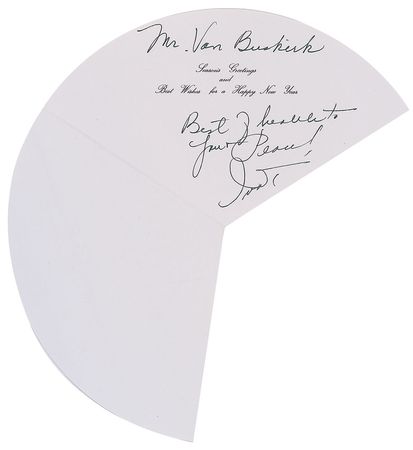 Mr. Van Buskirk
Season's Greetings
and
Best Wishes for a Happy New Year
Best of health to
you + Peace!